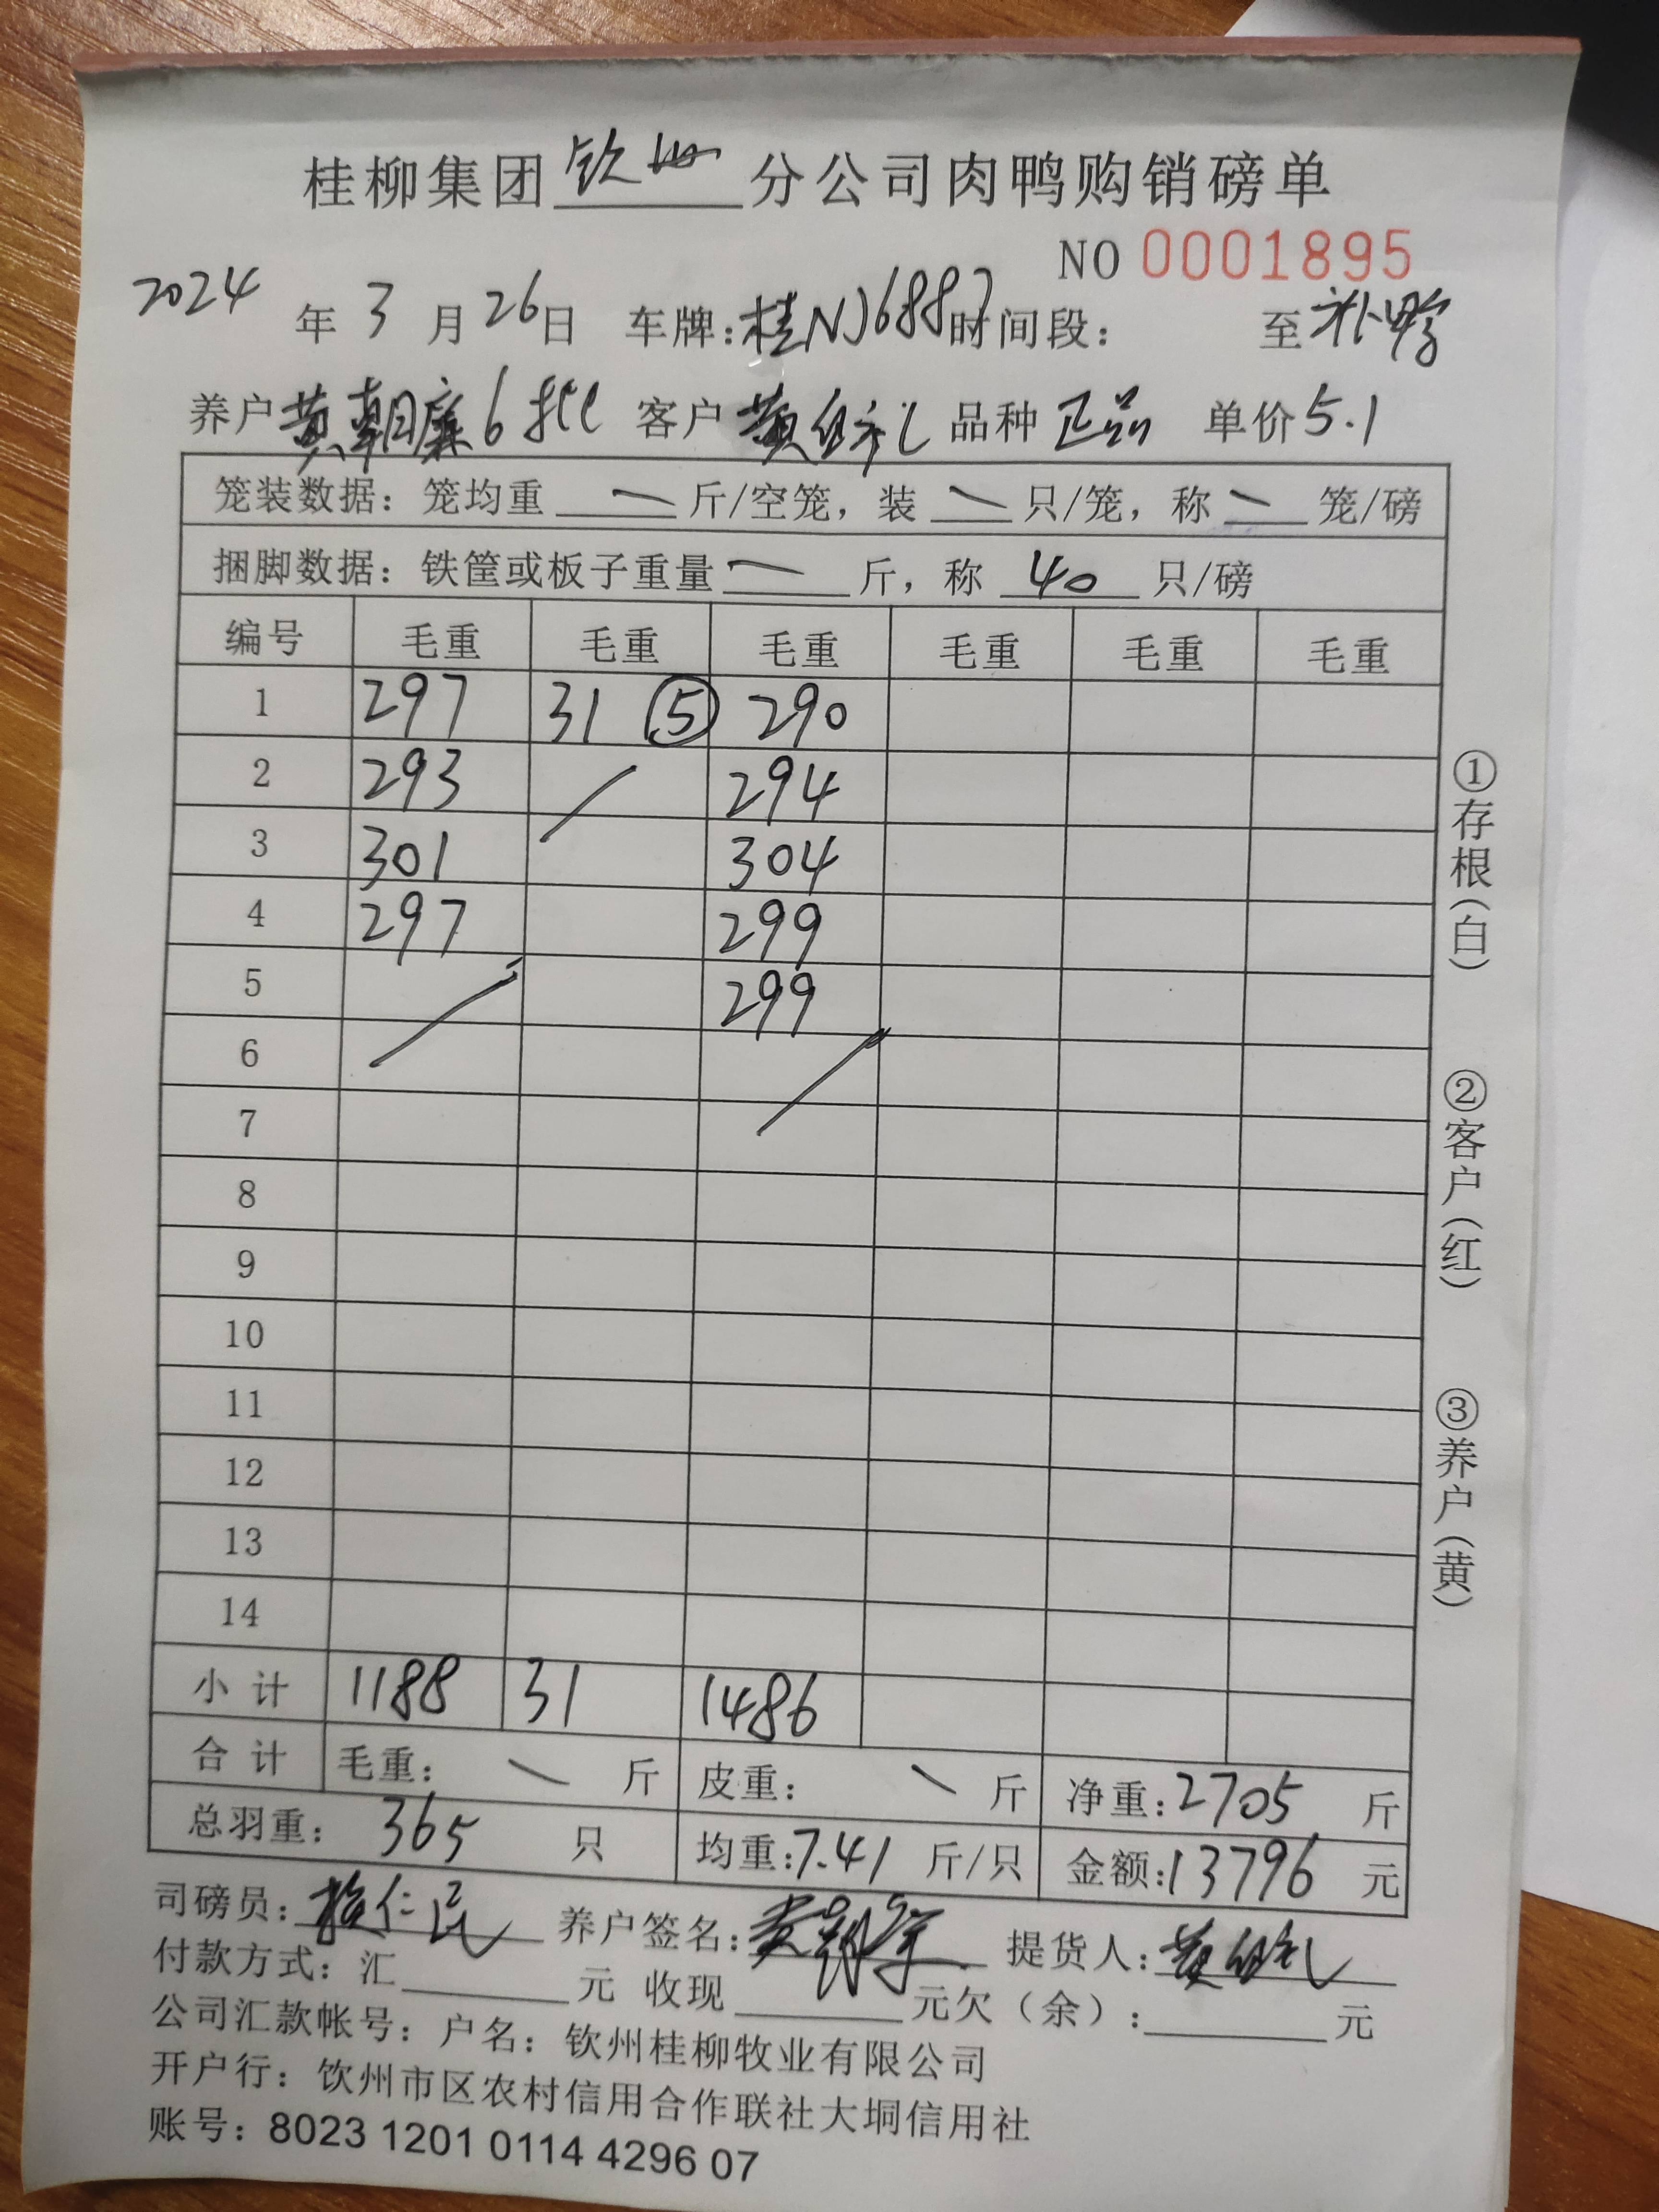 桂柳集团钦州分公司肉鸭购销磅单
NO 0001895
2024年3月26日 车牌:桂NJ6887时间段: 至补鸭
养户黄朝廉6批 客户黄 礼 品种正品 单价5.1
笼装数据:笼均重 — 斤/空笼,装 — 只/笼,称 — 笼/磅
捆脚数据:铁筐或板子重量 — 斤,称 40 只/磅
编号 毛重 毛重 毛重 毛重 毛重 毛重
1 297 31 ⑤ 290
2 293 294
3 301 304
4 297 299
5 299
6
7
8
9
10
11
12
13
14
小计 1188 31 1486
合计 毛重: — 斤 皮重: — 斤 净重:2705 斤
总羽重: 365 只 均重:7.41 斤/只 金额:13796 元
司磅员: 仁 养户签名:黄 提货人:黄 礼
付款方式:汇 元 收现 元欠(余): 元
公司汇款帐号:户名:钦州桂柳牧业有限公司
开户行:钦州市区农村信用合作联社大垌信用社
账号:8023 1201 0114 4296 07
①存根(白)
②客户(红)
③养户(黄)